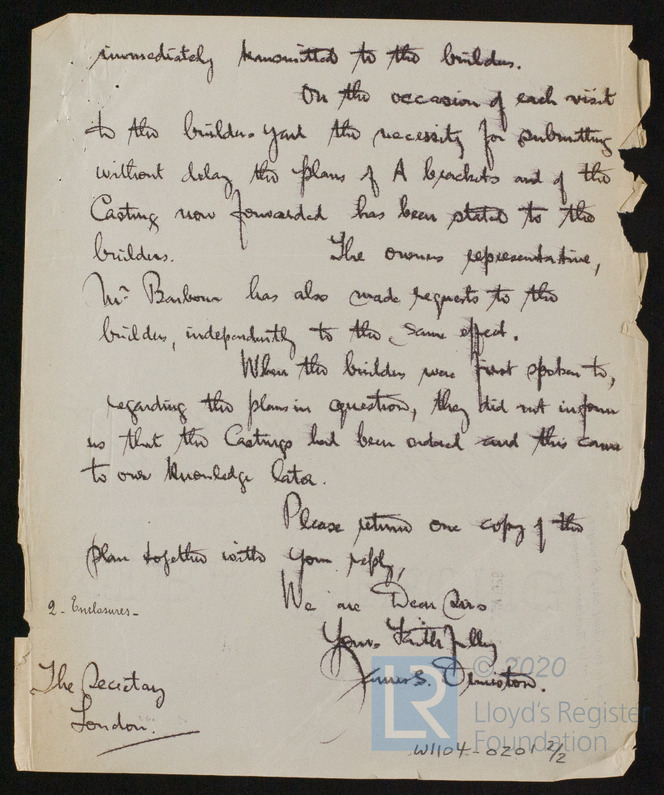 immediately transmitted to the builders.
On the occasion of each visit
to the builders yard the necessity for submitting
without delay the plans of A brackets and of the
Casting now forwarded has been stated to the
builders. The owners representative,
Mr Barbour has also made requests to the
builders, independently to the same effect.
When the builders were first spoken to,
regarding the plans in question, they did not inform
us that the Castings had been ordered and this came
to our knowledge later.
Please return one copy of the
plan together with your reply,
We are Dear Sirs
2 - Enclosures -
Yours Faithfully
James S. Ormiston.
The Secretary
London.
© 2020
LR
Lloyd's Register
Foundation
W1104-0201 2/2